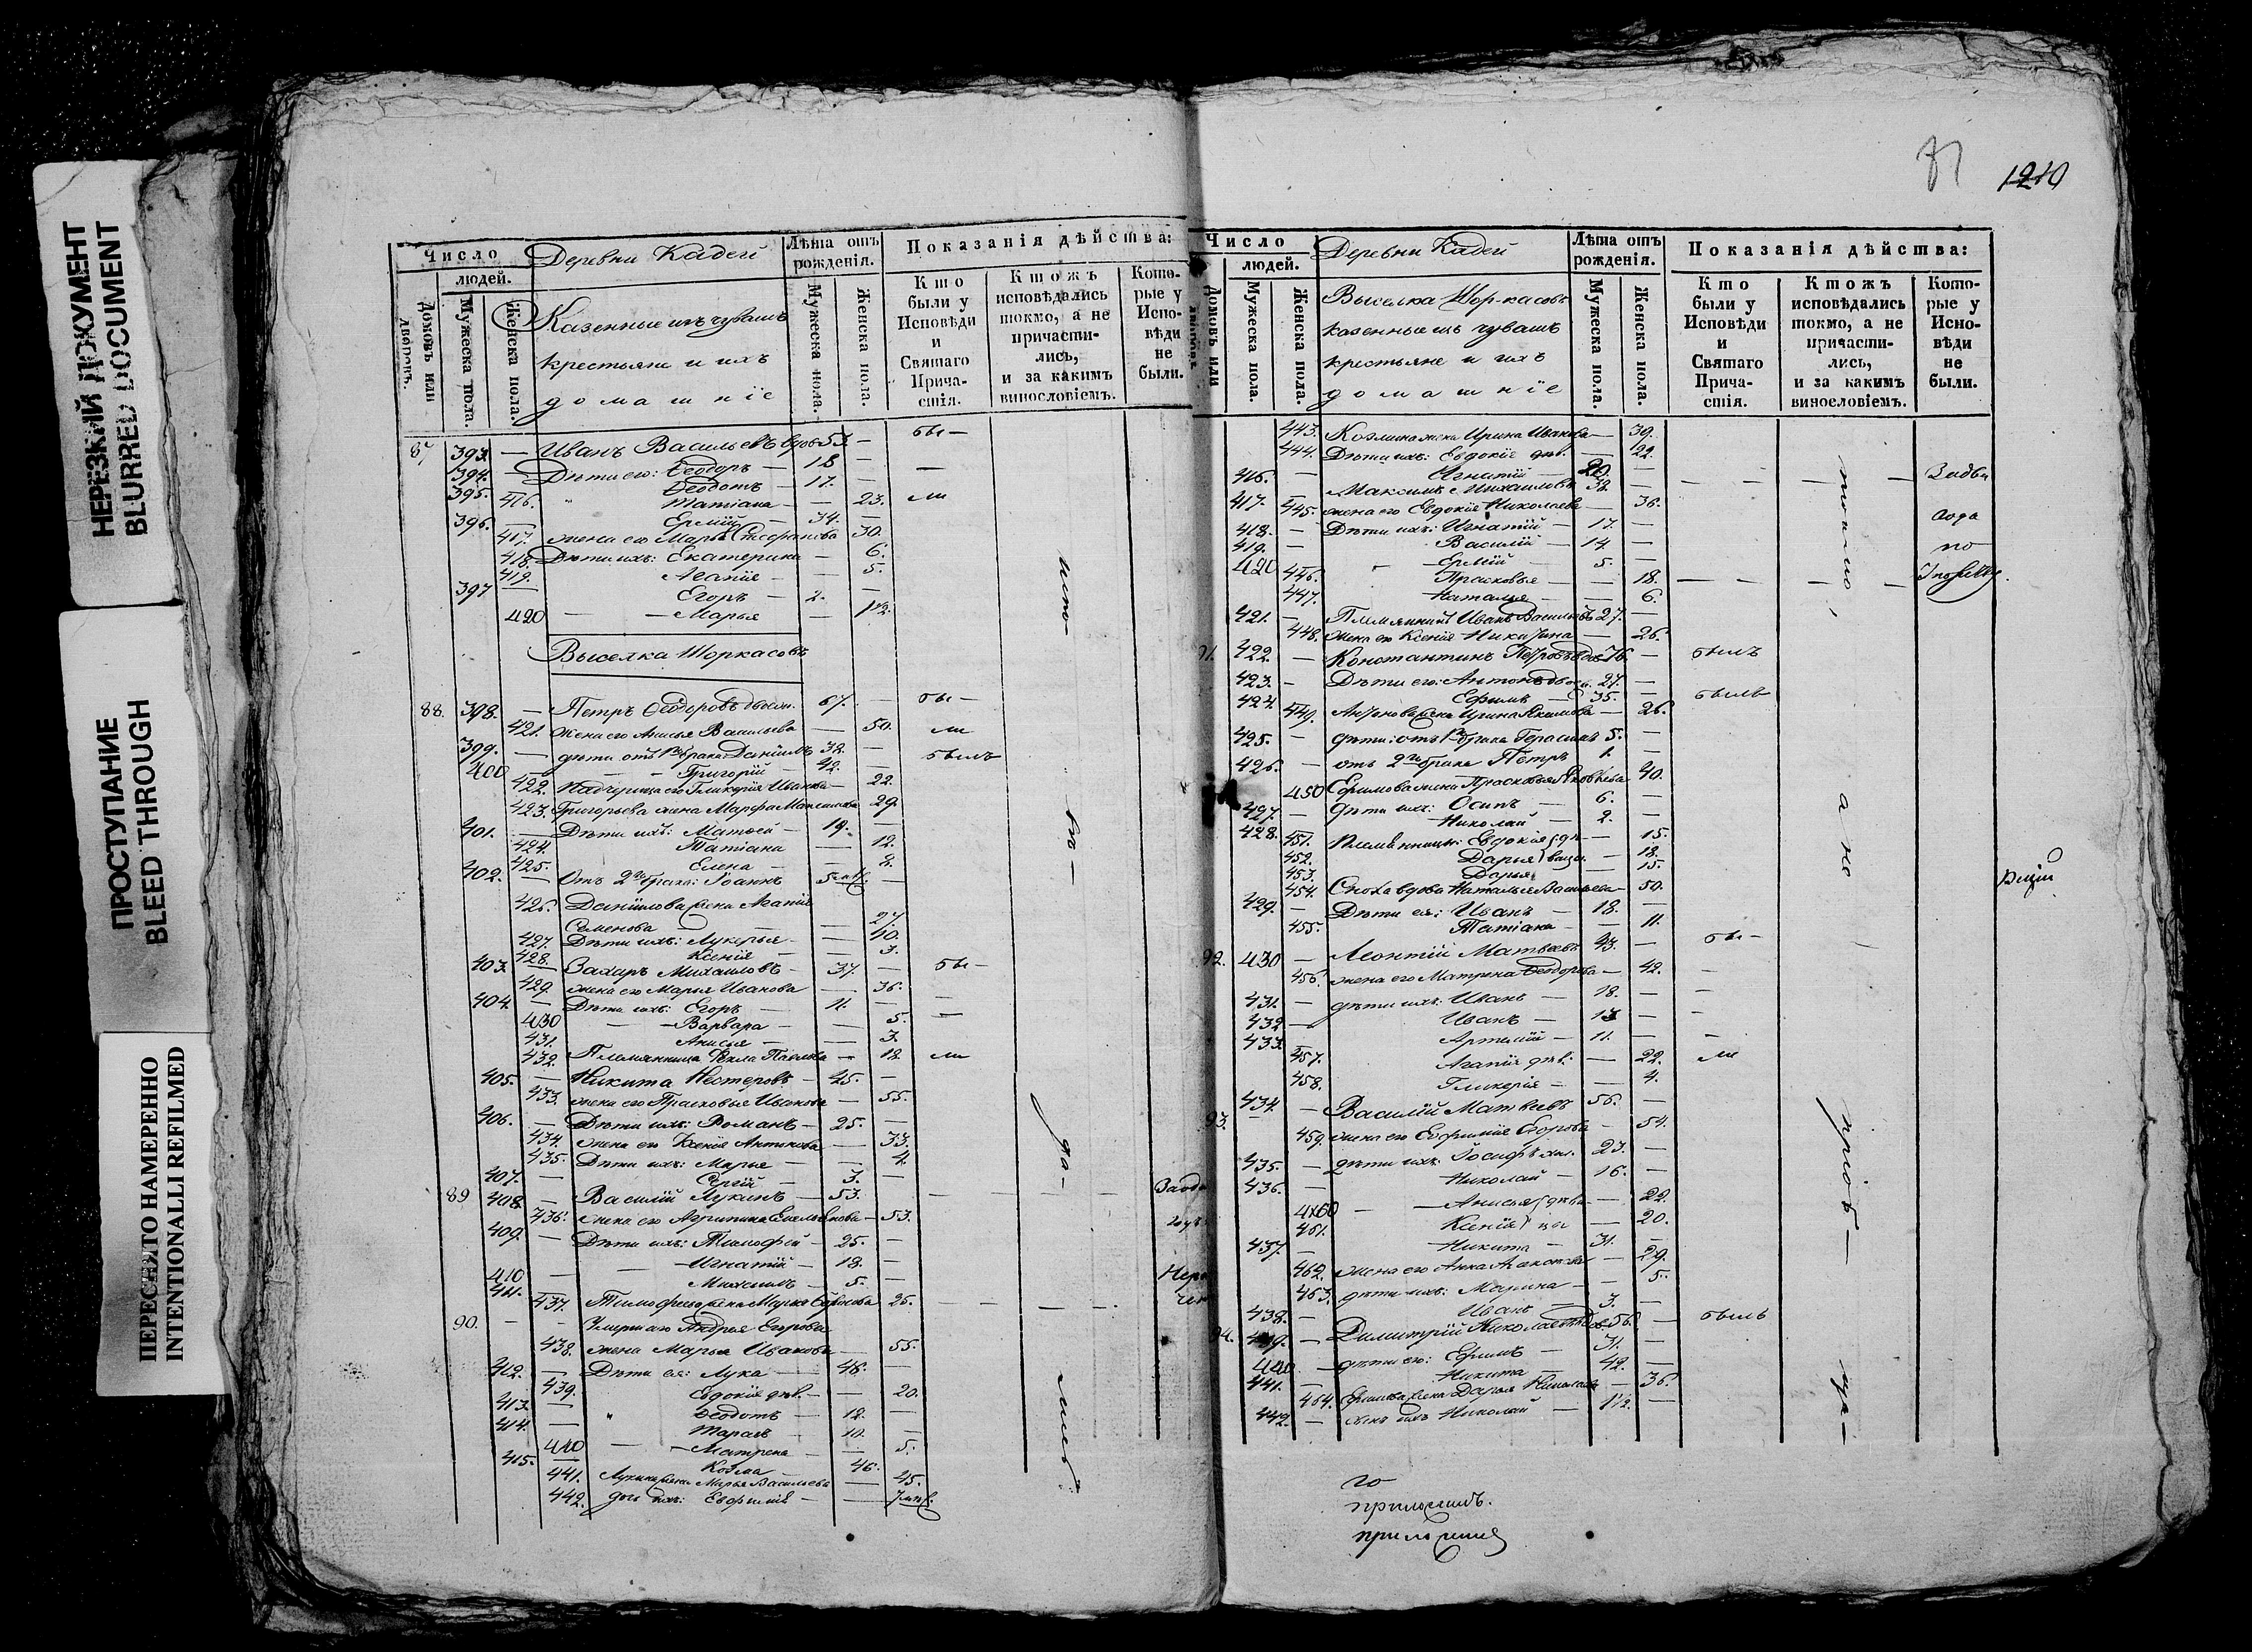 НЕРЕЗКИЙ ДОКУМЕНТ
BLURRED DOCUMENT
ПРОСТУПАНИЕ
BLEED THROUGH
ПЕРЕСНЯТО НАМЕРЕННО
INTENTIONALLI REFILMED
Число
людей.
Домовъ или дворовъ.
Мужеска пола.
Женска пола.
Деревни Кадей
Казенные изъ чувашъ
крестьяне и ихъ
домашніе
Лѣта отъ рожденія.
Мужеска пола.
Женска пола.
Показанія дѣйства:
Кто были у Исповѣди и Святаго Прича-стія.
Ктожъ исповѣдались токмо, а не причасти-лись, и за какимъ винословіемъ.
Кото-рые у Испо-вѣди не были.
87 393. — Иванъ Васильевъ вдов 53. — бы —
394. — Дѣти его: Ѳеодоръ — 18 — —
395. Ѳеодотъ — 17. —
416. " Татіана — — 23. ли
396. Ермій — 34.
417. жена его Марья Стефанова 30.
418. Дѣти ихъ: Екатерина — 6.
419. Агапія — — 5.
397 Егоръ — 2. —
420 — — Марья — 1 1/2.
Выселка Шоркасовъ
88. 398. — Петръ Ѳеодоровъ 67. — бы —
421. Жена его Анисья Васильева — 50. ли
399. — дѣти отъ 1го брака Даніилъ 32. — былъ
400 — — Григорій — 42. —
422. Падчерица его Гликерія Иванова — 22.
423. Григорьева жена Марфа Максимова 29.
401. — Дѣти ихъ: Матвей — 19. —
424. Татіана — 12.
425. Елена — — 8.
402. — Отъ 2го брака: Іоаннъ —
426. Даніилова жена Агапія
Семенова — — 27.
427. Дѣти ихъ: Лукерья — — 10.
428. Ксенія — — 3.
403. — Захаръ Михаиловъ — 37. — бы —
429. жена его Марья Иванова — 36.
404. — Дѣти ихъ: Егоръ — 11. — —
430 — — Варвара — — 5. —
431. Анисья — — 3.
432. Племянница Ѳекла Павлова — 18 ли
405. — Никита Нестеровъ — 45. —
433. жена его Прасковья Иванова — 55.
406. — Дѣти ихъ: Романъ — 25. —
434. жена его Ксенія Антипова — 33.
435. Дѣти ихъ: Марья — — 4.
407. — Сергій — 3. —
89 408. — Василій Лукинъ — 53. — — — —
436. жена его Агрипина Емельянова — 53.
409. — Дѣти ихъ: Тимофей — 25. —
410 — — Игнатій — 18. —
411. Максимъ — 5. —
437. Тимофеева жена Марья 25. — — — —
90. — — Умершаго Андрея Егорова
438. жена Марья Иванова — 55.
412. — Дѣти ея: Лука — 48. —
439. Евдокія дѣв. — — 20.
413. — " Ѳеодотъ — 12. —
414. — Тарасъ — 10. —
440 — — Матрена — — 5.
415. Козма — 46.
441. Лукина жена Марья Васильева — 45.
442. дочь ихъ: Евфимія —
испо-
вѣ-
да-
лись
71
1210
Число
людей.
Домовъ или
Мужеска пола.
Женска пола.
Деревни Кадей
Выселка Шор-касовъ
казенные изъ чувашъ
крестьяне и ихъ
домашніе
Лѣта отъ рожденія.
Мужеска пола.
Женска пола.
Показанія дѣйства:
Кто были у Исповѣди и Святаго Прича-стія.
Ктожъ исповѣдались токмо, а не причасти-лись, и за какимъ винословіемъ.
Кото-рые у Испо-вѣди не были.
443. Козмина жена Ирина Иванова — 39.
444. Дѣти ихъ: Евдокія дѣв. — 22
416. Игнатій — 20. —
Максимъ Михаиловъ 38. — — — — —
417. 445. жена его Евдокія Николаева — 36.
418. — Дѣти ихъ: Игнатій — 17. —
419. — Василій — 14. —
420 — Ермій — 5.
446. Прасковья — — 18. — — — —
447. Наталья — — 6.
421. — Племянникъ Иванъ Васильевъ 27. —
448. жена его Ксенія Никитина — 26.
91. 422. — Константинъ Петровъ 76. — былъ
423. — Дѣти его: Антонъ 27. —
424. Ефимъ — 35. — былъ
449. Антонова жена Ирина Якимова — 26.
425. — дѣти: отъ 1го брака Герасимъ 5. —
426. — отъ 2го брака Петръ 1. —
450 Ефимова жена Прасковья Яковлева 40.
427. — дѣти ихъ: Осипъ — 6. —
428. Николай — 2. —
451. Племянницы: Евдокія — 15.
452. Дарья — 18.
453. Дарья 15.
454. Сноха вдова Наталья Васильева — 50.
429. — Дѣти ея: Иванъ — 18. —
455. Татіана — — 11.
92. 430 — Леонтій Матвеевъ 43. — бы —
456. жена его Матрена Ѳеодорова — 42. —
431. — дѣти ихъ: Иванъ — 18. — —
432 — Иванъ — 13 — —
433. Артемій — 11. — —
457. Агапія дѣв. — 22. ли
458. Гликерія — — 4.
93. 434. — Василій Матвеевъ 56. —
459. жена его Евфимія Егорова — 54.
435. — дѣти ихъ: Іосифъ 23. —
436. — Николай — 16. —
460 — — Анисья — 22.
461. Ксенія — 20.
437. — Никита — 31. —
462. жена его Анна — 29.
463. дѣти ихъ: Марина — — 5.
438. — Иванъ — 3. —
94. 439. — Димитрій Николаевъ 56. — былъ
440 — дѣти его: Ефимъ — 31.
441. — Никита — 42. —
464. Ефимова жена Дарья Николаева — 36.
442. — сынъ ихъ Николай — 1 1/2. —
токмо,
а не
пріоб-
по
го
приложилъ.